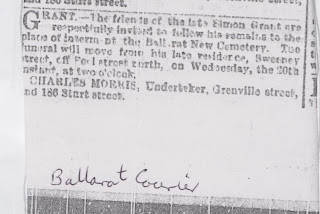 and 186 Sturt street.
GRANT.—The friends of the late Simon Grant are
respectfully invited to follow his remains to the
place of interm nt the Ballarat New Cemetery. The
funeral will move from his late residence, Sweeney
street, off Peel street north, on Wednesday, the 20th
instant, at two o'clock.
CHARLES MORRIS, Undertaker, Grenville street,
and 186 Sturt street.
Ballarat Courier